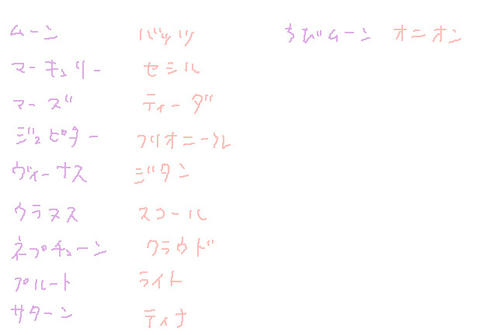 ムーン バッツ ちびムーン オニオン
マーキュリー セシル
マーズ ティーダ
ジュピター フリオニール
ヴィーナス ジタン
ウラヌス スコール
ネプチューン クラウド
プルート ライト
サターン ティナ